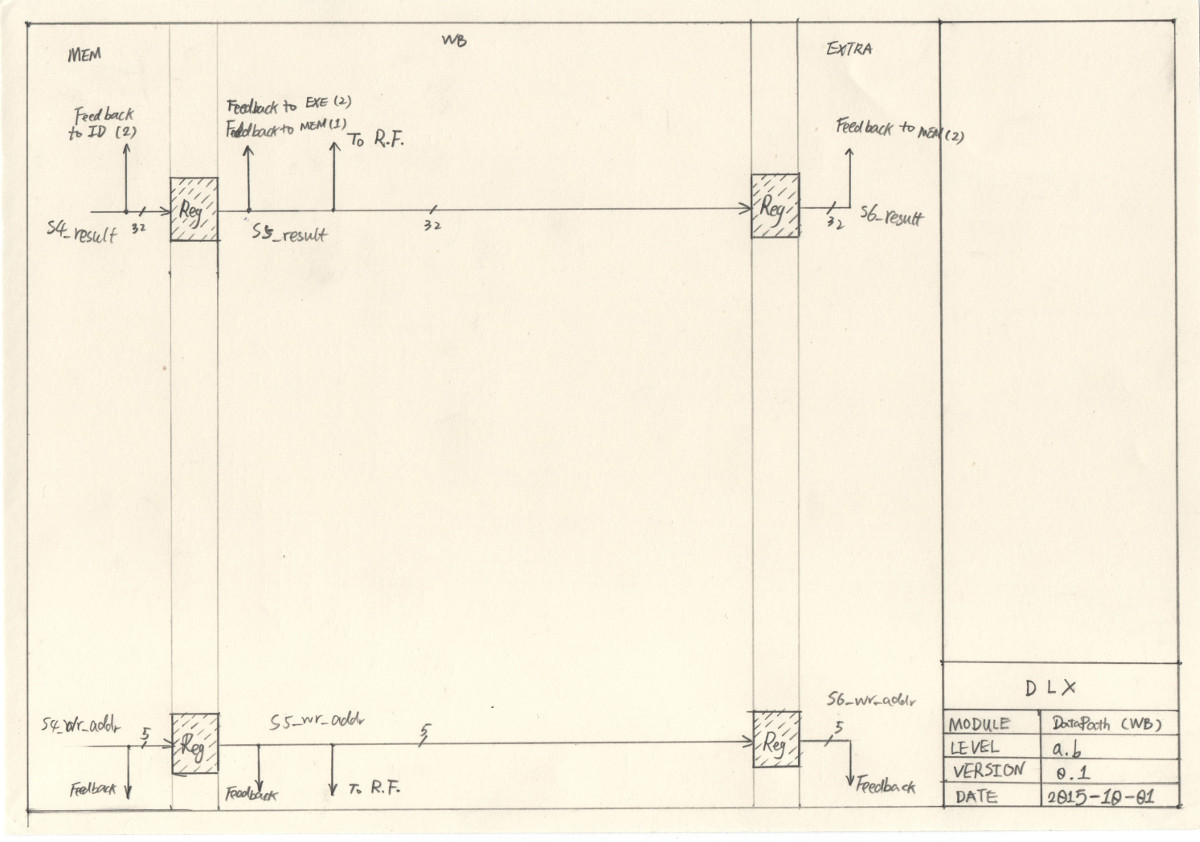 MEM
WB
EXTRA
Feedback
to ID (2)
Feedback to EXE (2)
Feedback to MEM (1)
To R.F.
Feedback to MEM (2)
Reg
Reg
S4_result
32
S5_result
32
32
S6_result
S4_wr_addr
5
Reg
S5_wr_addr
5
Reg
S6_wr_addr
5
Feedback
Feedback
To R.F.
Feedback
DLX
MODULE DataPath (WB)
LEVEL a.b
VERSION 0.1
DATE 2015-10-01